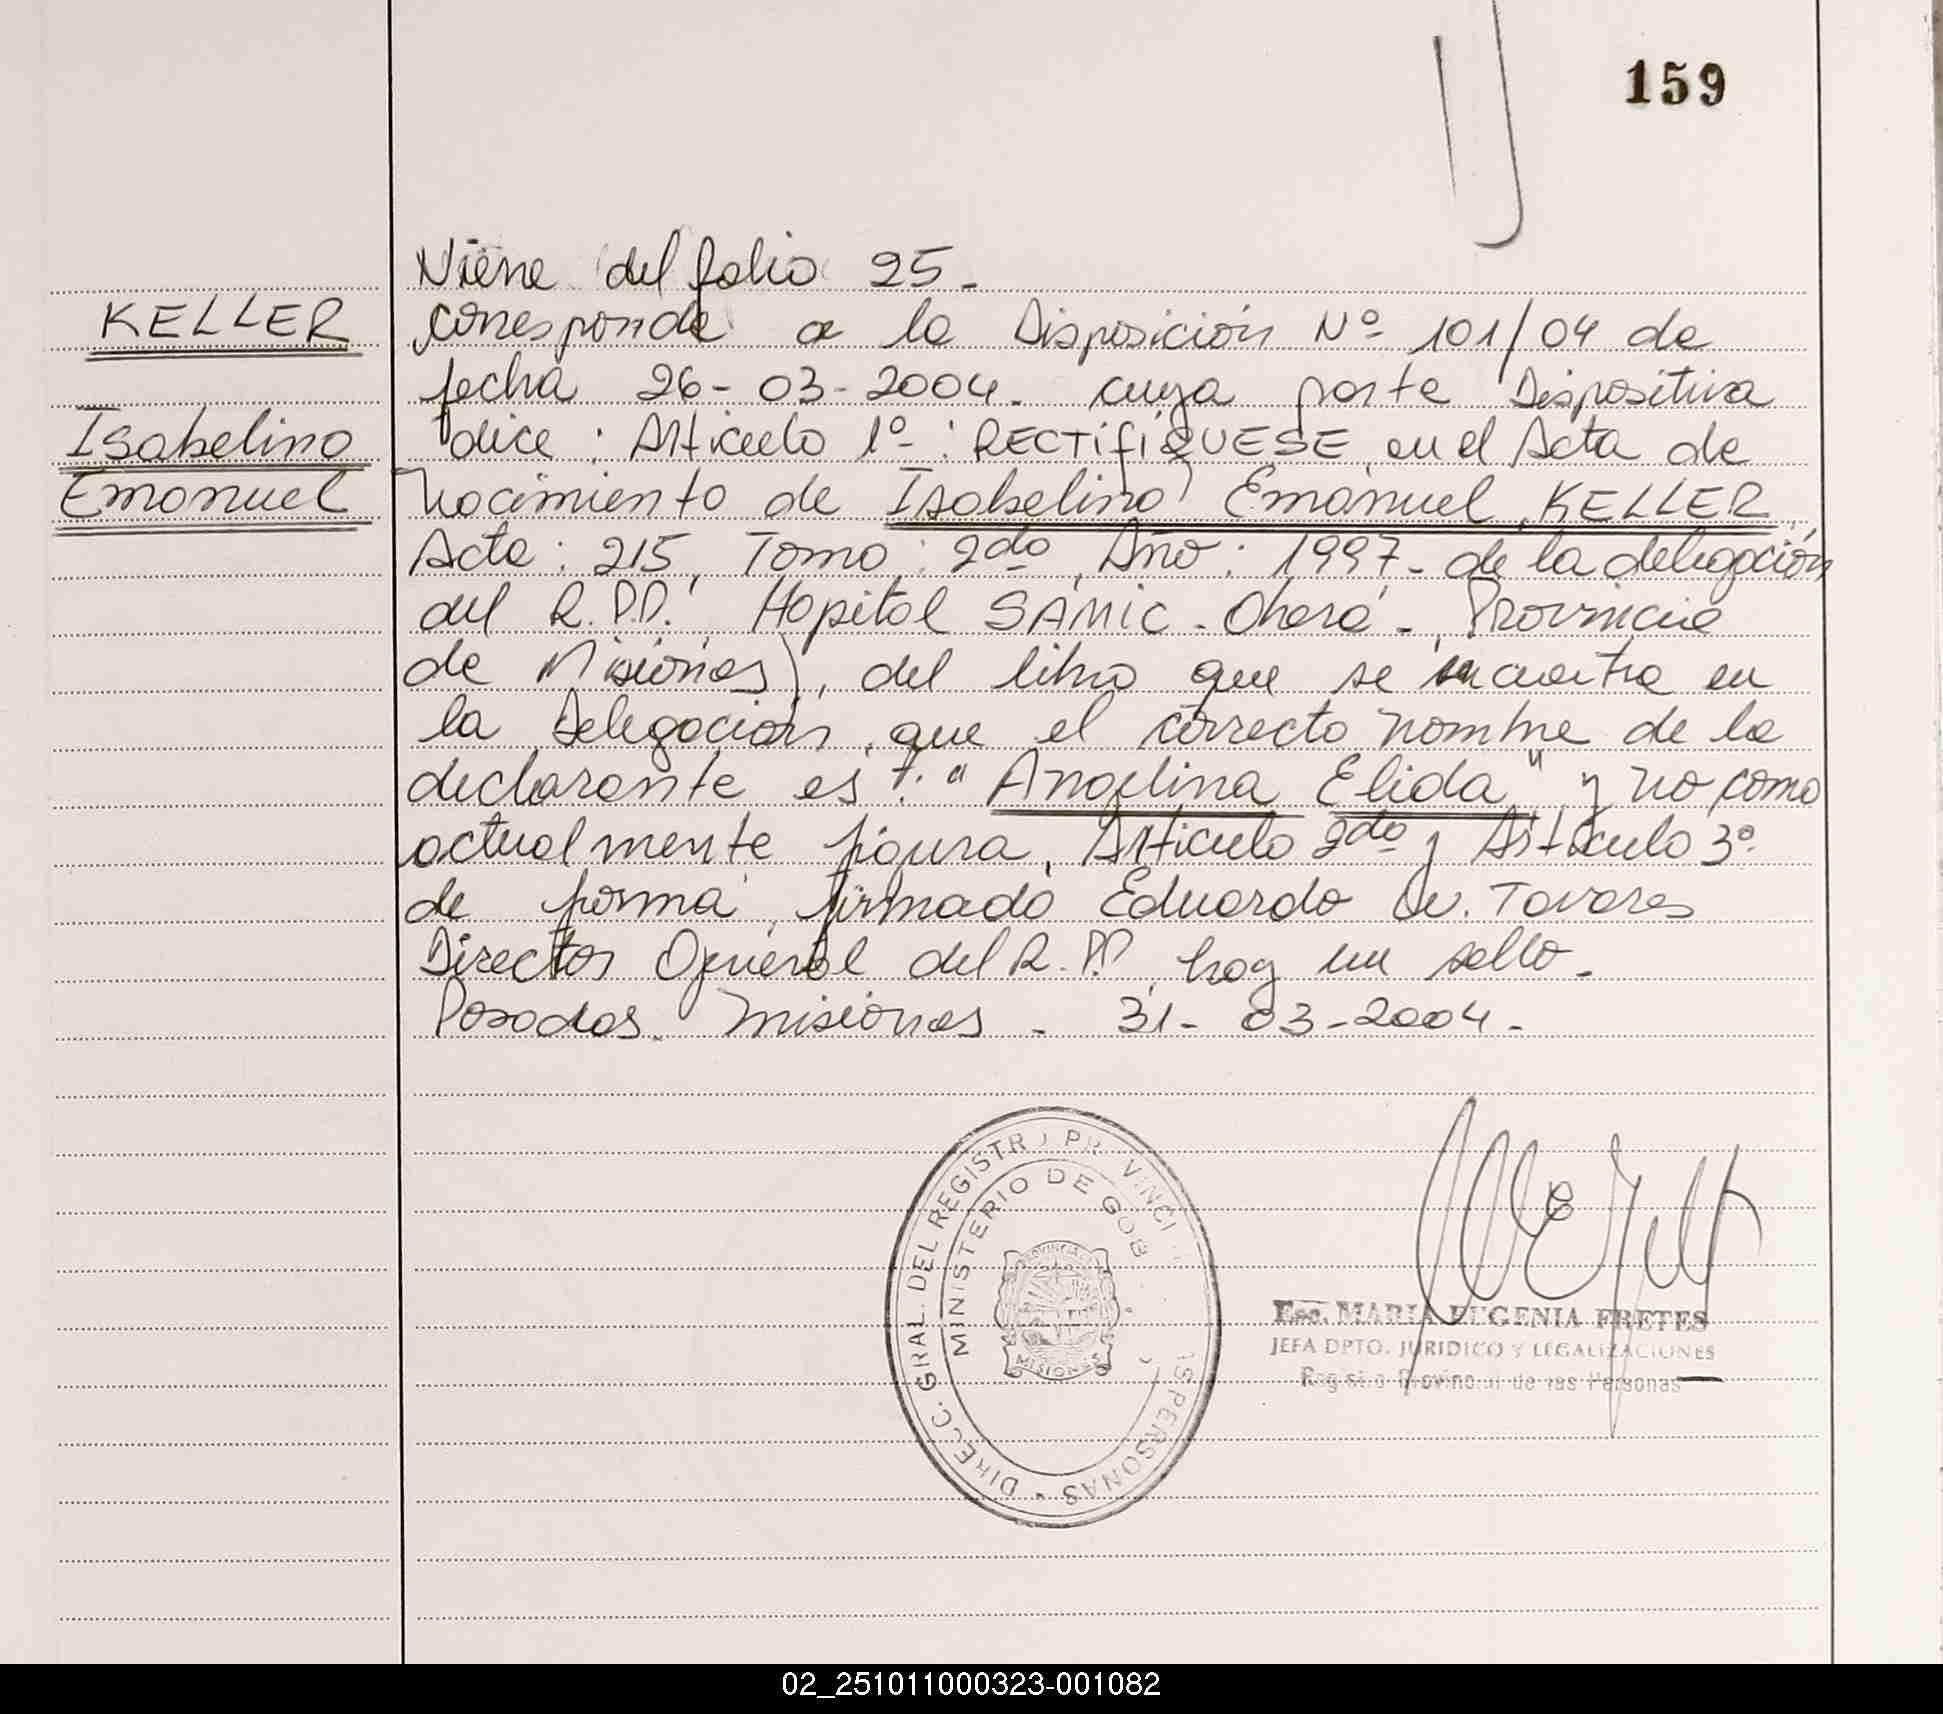 159
Viene del folio 25.
KELLER
corresponde a la Disposición Nº 101/04 de
fecha 26-03-2004. cuya parte Dispositiva
Isabelino
dice: Articulo 1º: RECTIFIQUESE, en el Acta de
Emanuel
Nacimiento de Isabelino Emanuel, KELLER
Acta: 215, Tomo: 2do, Año: 1997- de la delegación
del R.P.P. Hopital SAMIC - Oberá -, Provincia
de Misiones), del libro que se encuentra en
la Delegación, que el correcto nombre de la
declarante es: "Angelina Elida" y no como
actualmente figura, Articulo 2do y Articulo 3º
de forma, firmado Eduardo W. Tavares
Director General del R.P.P, hay un sello.
Posadas. Misiones - 31-03-2004-
DIRECC. GRAL. DEL REGISTR PR VINCI AS PERSONAS
MINISTERIO DE GOB
PROVINCIA
MISIONES
Esc. MARIA EUGENIA FRETES
JEFA DPTO. JURIDICO Y LEGALIZACIONES
Registro Provincial de las Personas
02_251011000323-001082